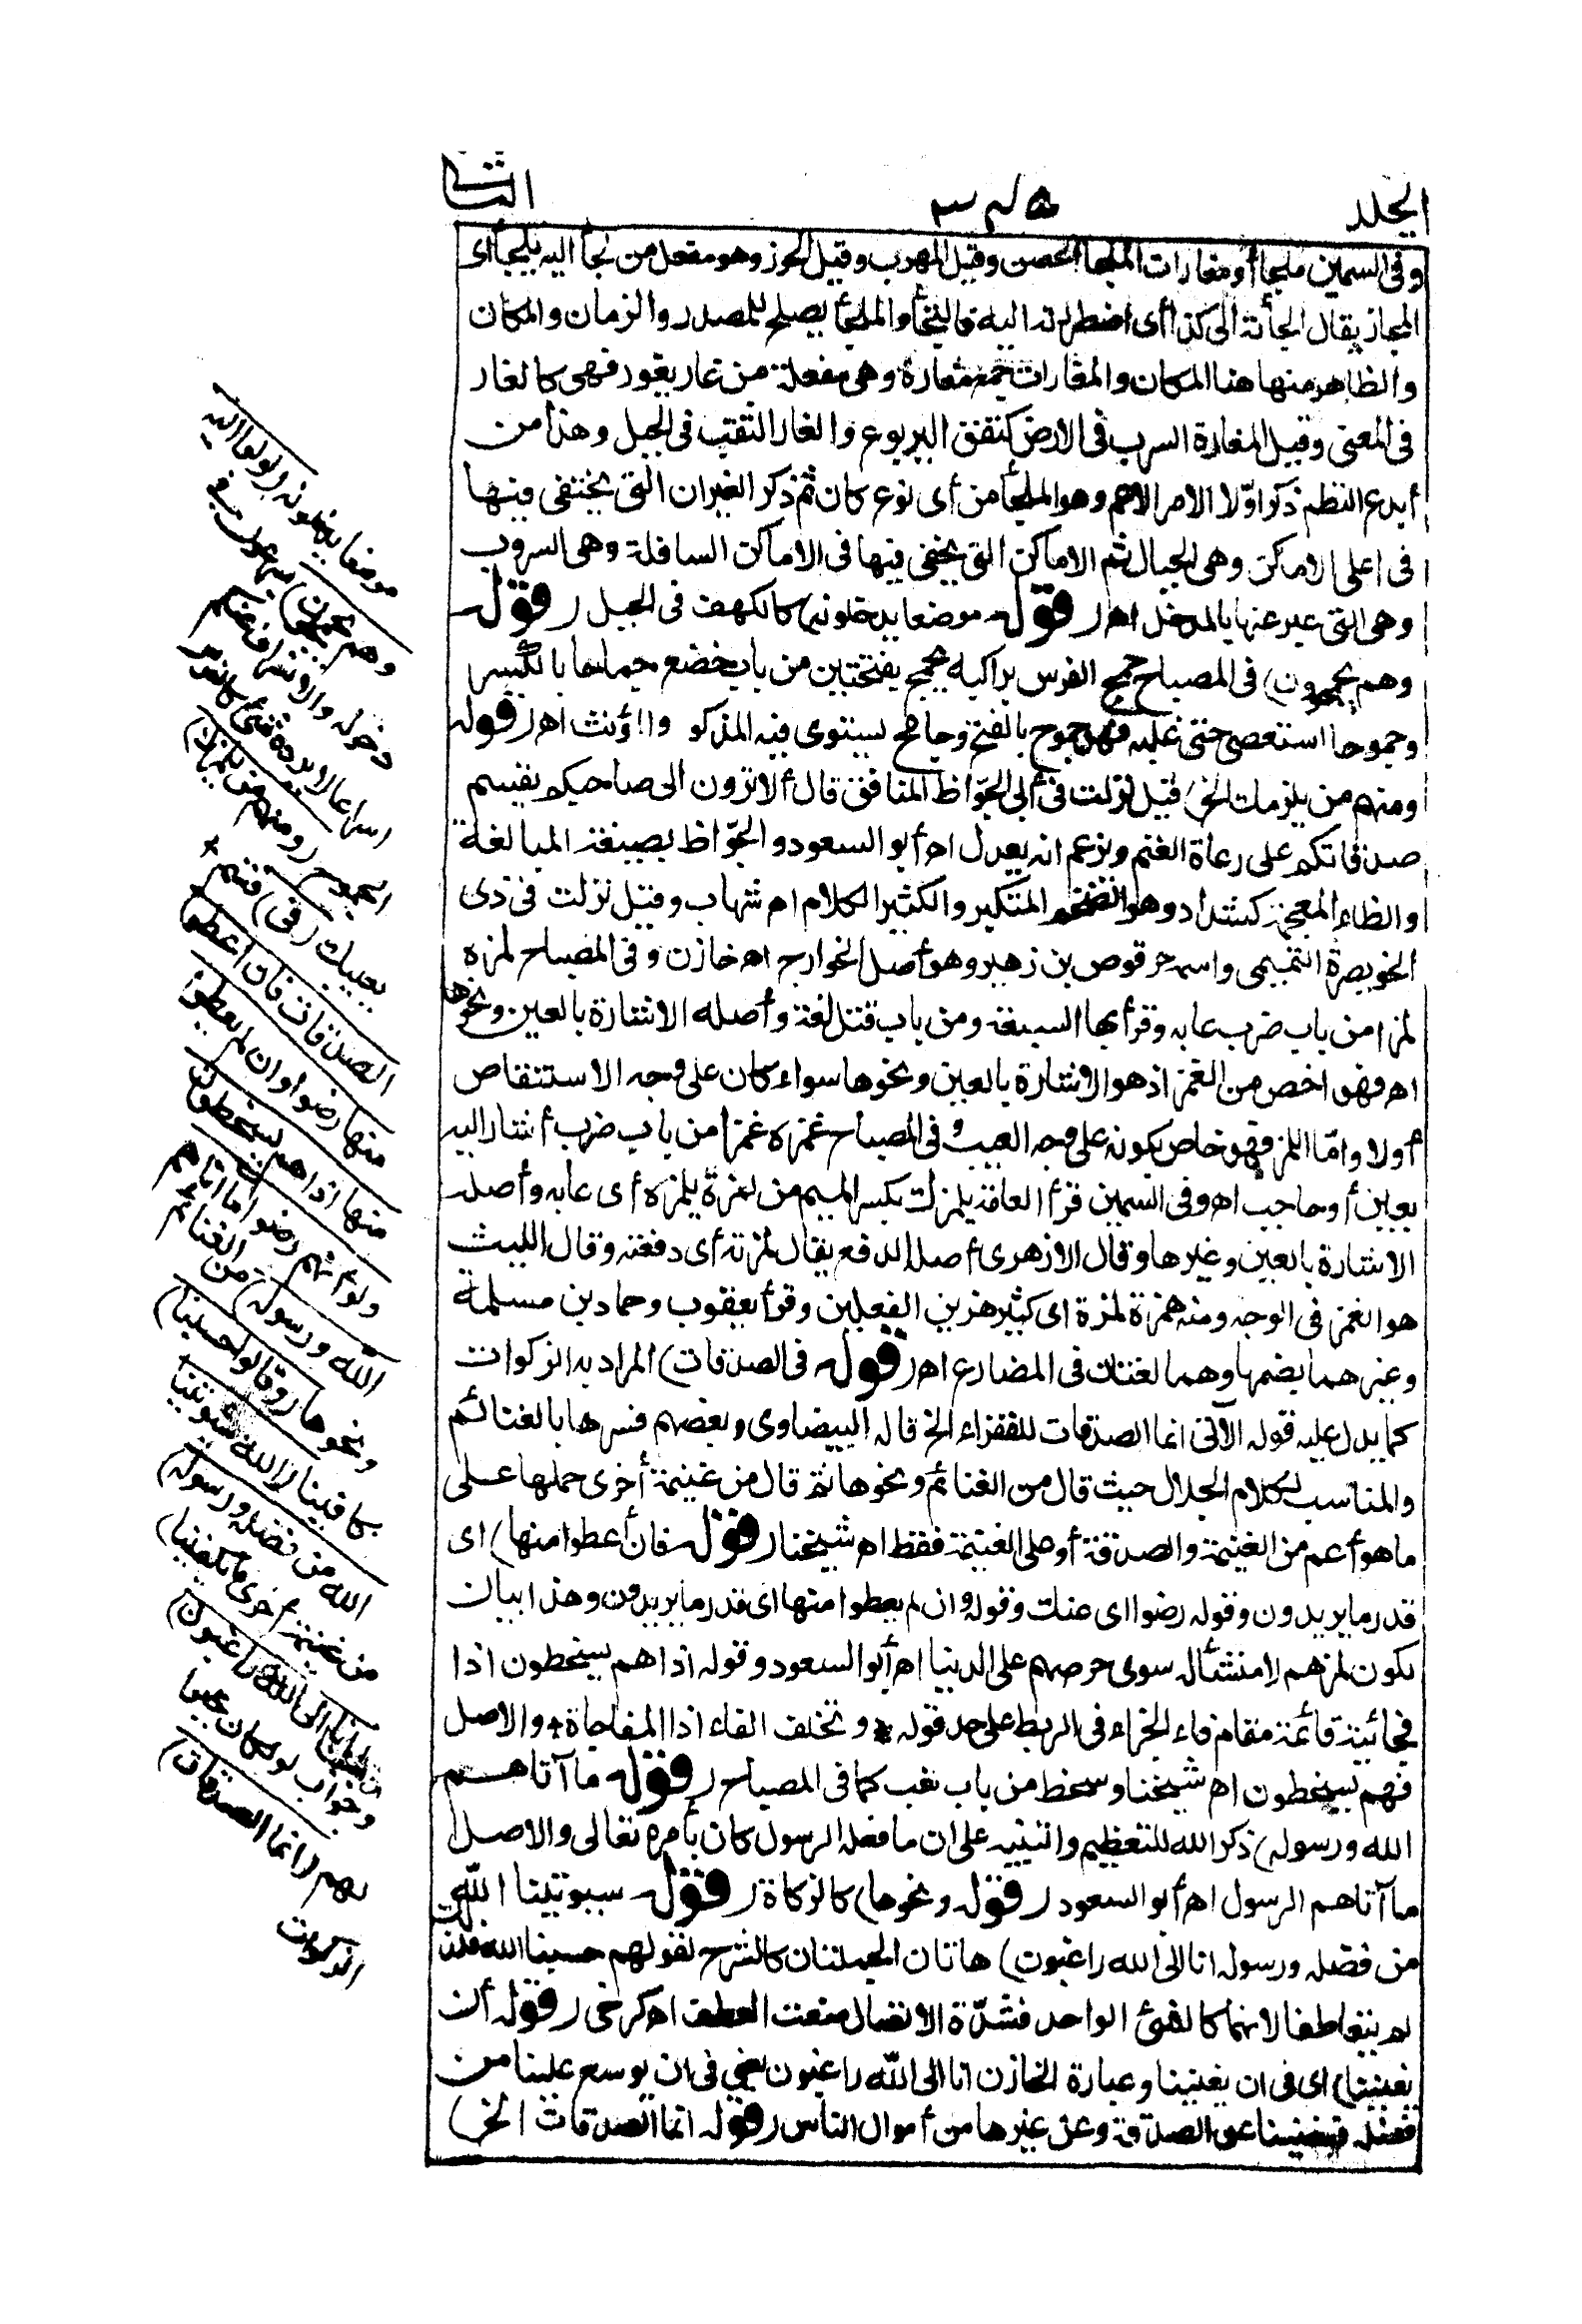 الجلد
٣٤٥
الثانى
وفى السمين ملجأ أو مغارات الملجأ الحصن وقيل المهرب وقيل الحرز وهو مفعل من لجأ اليه يلجأ اى
المجاز يقال ألجأته الى كذا أى اضطررته اليه فالتجأ والملجأ يصلح للمصدر والزمان والمكان
والظاهر منها هنا المكان والمغارات جمع مغارة وهى مفعلة من غار يغور فهى كالغار
فى المعنى وقيل المغارة السرب فى الارض كنفق اليربوع والغار الثقب فى الجبل وهذا من
أبدع النظم ذكر اوّلا الامر الاعم وهو الملجأ من أى نوع كان ثم ذكر الغيران التى يختفى فيها
فى اعلى الاماكن وهى الجبال ثم الاماكن التى يختفى فيها فى الاماكن السافلة وهى السروب
وهى التى عبر عنها بالمدخل اهـ (قوله موضعا يدخلونه) كالكهف فى الجبل (قوله
وهم يجمحون) فى المصباح جمح الفرس براكبه يجمح بفتحتين من باب خضع جماحا بالكسر
وجموحا استعصى حتى غلبه فهو جموح بالفتح وجامح يستوى فيه المذكر والمؤنث اهـ (قوله
ومنهم من يلزمك الخ) قيل نزلت فى أبى الجوّاظ المنافق قال ألا ترون الى صاحبكم يقسم
صدقاتكم على رعاة الغنم ويزعم انه يعدل اهـ أبو السعود والجوّاظ بصيغة المبالغة
والظاء المعجمة كشداد وهو الضخم المتكبر والكثير الكلام اهـ شهاب وقيل نزلت فى ذى
الخويصرة التميمى واسمه حرقوص بن زهير وهو أصل الخوارج اهـ خازن وفى المصباح لمزه
لمزا من باب ضرب عابه وقرأ بها السبعة ومن باب قتل لغة وأصله الاشارة بالعين ونحوها
اهـ فهو اخص من الغمز اذ هو الاشارة بالعين ونحوها سواء كان على وجه الاستنقاص
أولا وامّا اللمز فهو خاص بكونه على وجه العيب وفى المصباح غمزه غمزا من باب ضرب أشار اليه
بعين أو حاجب اهـ وفى السمين قرأ العامة يلمزك بكسر الميم من لمزه يلمزه أى عابه وأصله
الاشارة بالعين وغيرها وقال الازهرى أصله الدفع يقال لمزته أى دفعته وقال الليث
هو الغمز فى الوجه ومنه همزة لمزة اى كثير هذين الفعلين وقرأ يعقوب وحماد بن مسلمة
وغيرهما بضمها وهما لغتان فى المضارع اهـ (قوله فى الصدقات) المراد به الزكوات
كما يدل عليه قوله الآتى انما الصدقات للفقراء الخ قاله البيضاوى وبعضهم فسرها بالغنائم
والمناسب لكلام الجلال حيث قال من الغنائم ونحوها ثم قال من غنيمة أخرى حملها على
ما هو أعم من الغنيمة والصدقة أو على الغنيمة فقط اهـ شيخنا (قوله فان أعطوا منها) اى
قدر ما يريدون وقوله رضوا اى عنك وقوله وان لم يعطوا منها اى قدر ما يريدون وهذا بيان
لكون لمزهم لا منشأ له سوى حرصهم على الدنيا اهـ أبو السعود وقوله اذا هم يسخطون اذا
فجائية قائمة مقام فاء الجزاء فى الربط على حد قوله * وتخلف الفاء اذا المفاجاة * والاصل
فهم يسخطون اهـ شيخنا وسخط من باب تعب كما فى المصباح (قوله ما آتاهم
الله ورسوله) ذكر الله للتعظيم والتنبيه على ان ما فعله الرسول كان بأمره تعالى والاصل
ما آتاهم الرسول اهـ أبو السعود (قوله ونحوها) كالزكاة (قوله سيوتينا الله
من فضله ورسوله انا الى الله راغبون) هاتان الجملتان كالشرح لقولهم حسبنا الله فلذلك
لم يتعاطفا لانهما كالشئ الواحد فشدّة الاتصال منعت العطف اهـ كرخى (قوله أن
يغنينا) اى فى ان يغنينا وعبارة الخازن انا الى الله راغبون يعنى فى ان يوسع علينا من
فضله فيغنينا عن الصدقة وعن غيرها من أموال الناس (قوله انما الصدقات الخ)
موضعا يدخلونه (لولوا اليه
وهم يجمحون) يسرعون فى
دخوله والانصراف عنكم
اسراعا لا يرده شئ كالفرس
الجموح (ومنهم من يلمزك)
يعيبك (فى) قسم
الصدقات فان اعطوا
منها رضوا وان لم يعطوا
منها اذا هم يسخطون
ولو أنهم رضوا ما آتاهم
الله ورسوله) من الغنائم
ونحوها (وقالوا حسبنا)
كافينا (الله سيوتينا
الله من فضله ورسوله)
من غنيمة أخرى ما يكفينا
انا الى الله راغبون)
وجواب لو لكان خيرا
لهم (انما الصدقات)
الزكوات